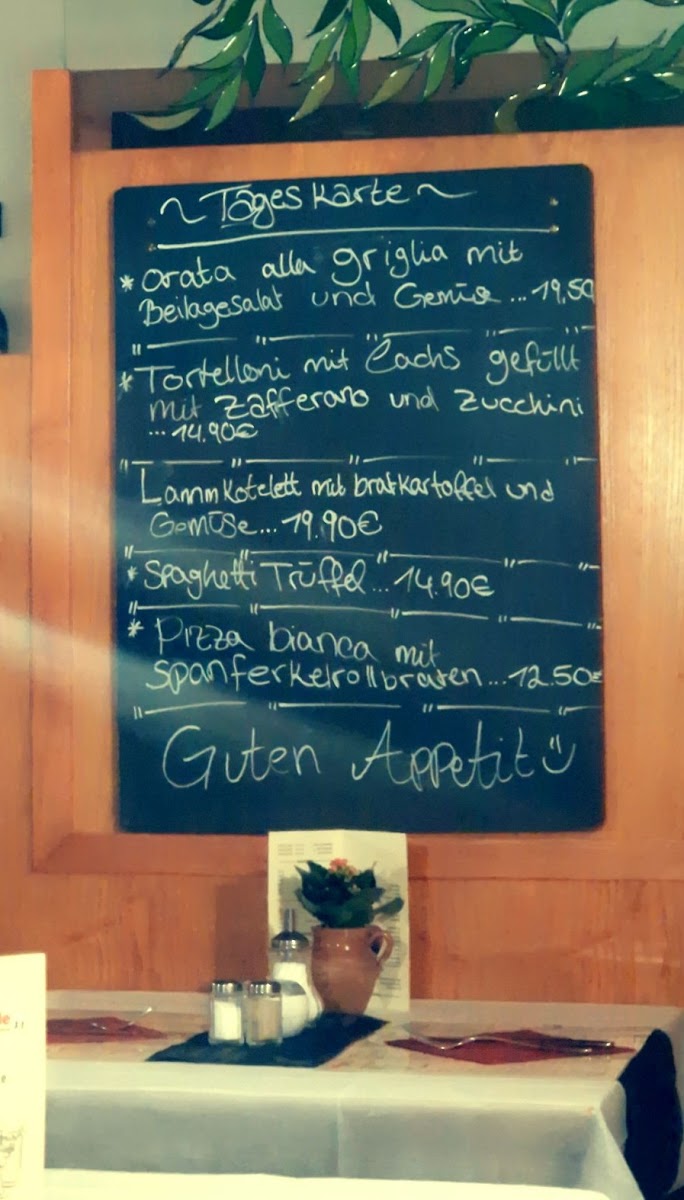 ~ Tageskarte ~
* Orata alla griglia mit
Beilagesalat und Gemüse ... 19,50
* Tortelloni mit Lachs gefüllt
mit Zafferano und Zucchini
... 14.90€
Lammkotelett mit bratkartoffel und
Gemüse... 19.90€
* Spaghetti Trüffel... 14.90€
* Pizza bianca mit
Spanferkelrollbraten ... 12.50€
Guten Appetit :)